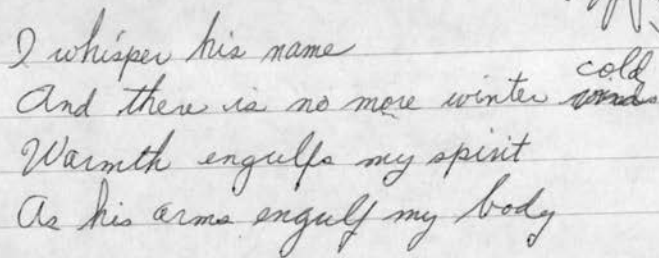 I whisper his name
And there is no more winter cold
Warmth engulfs my spirit
As his arms engulf my body